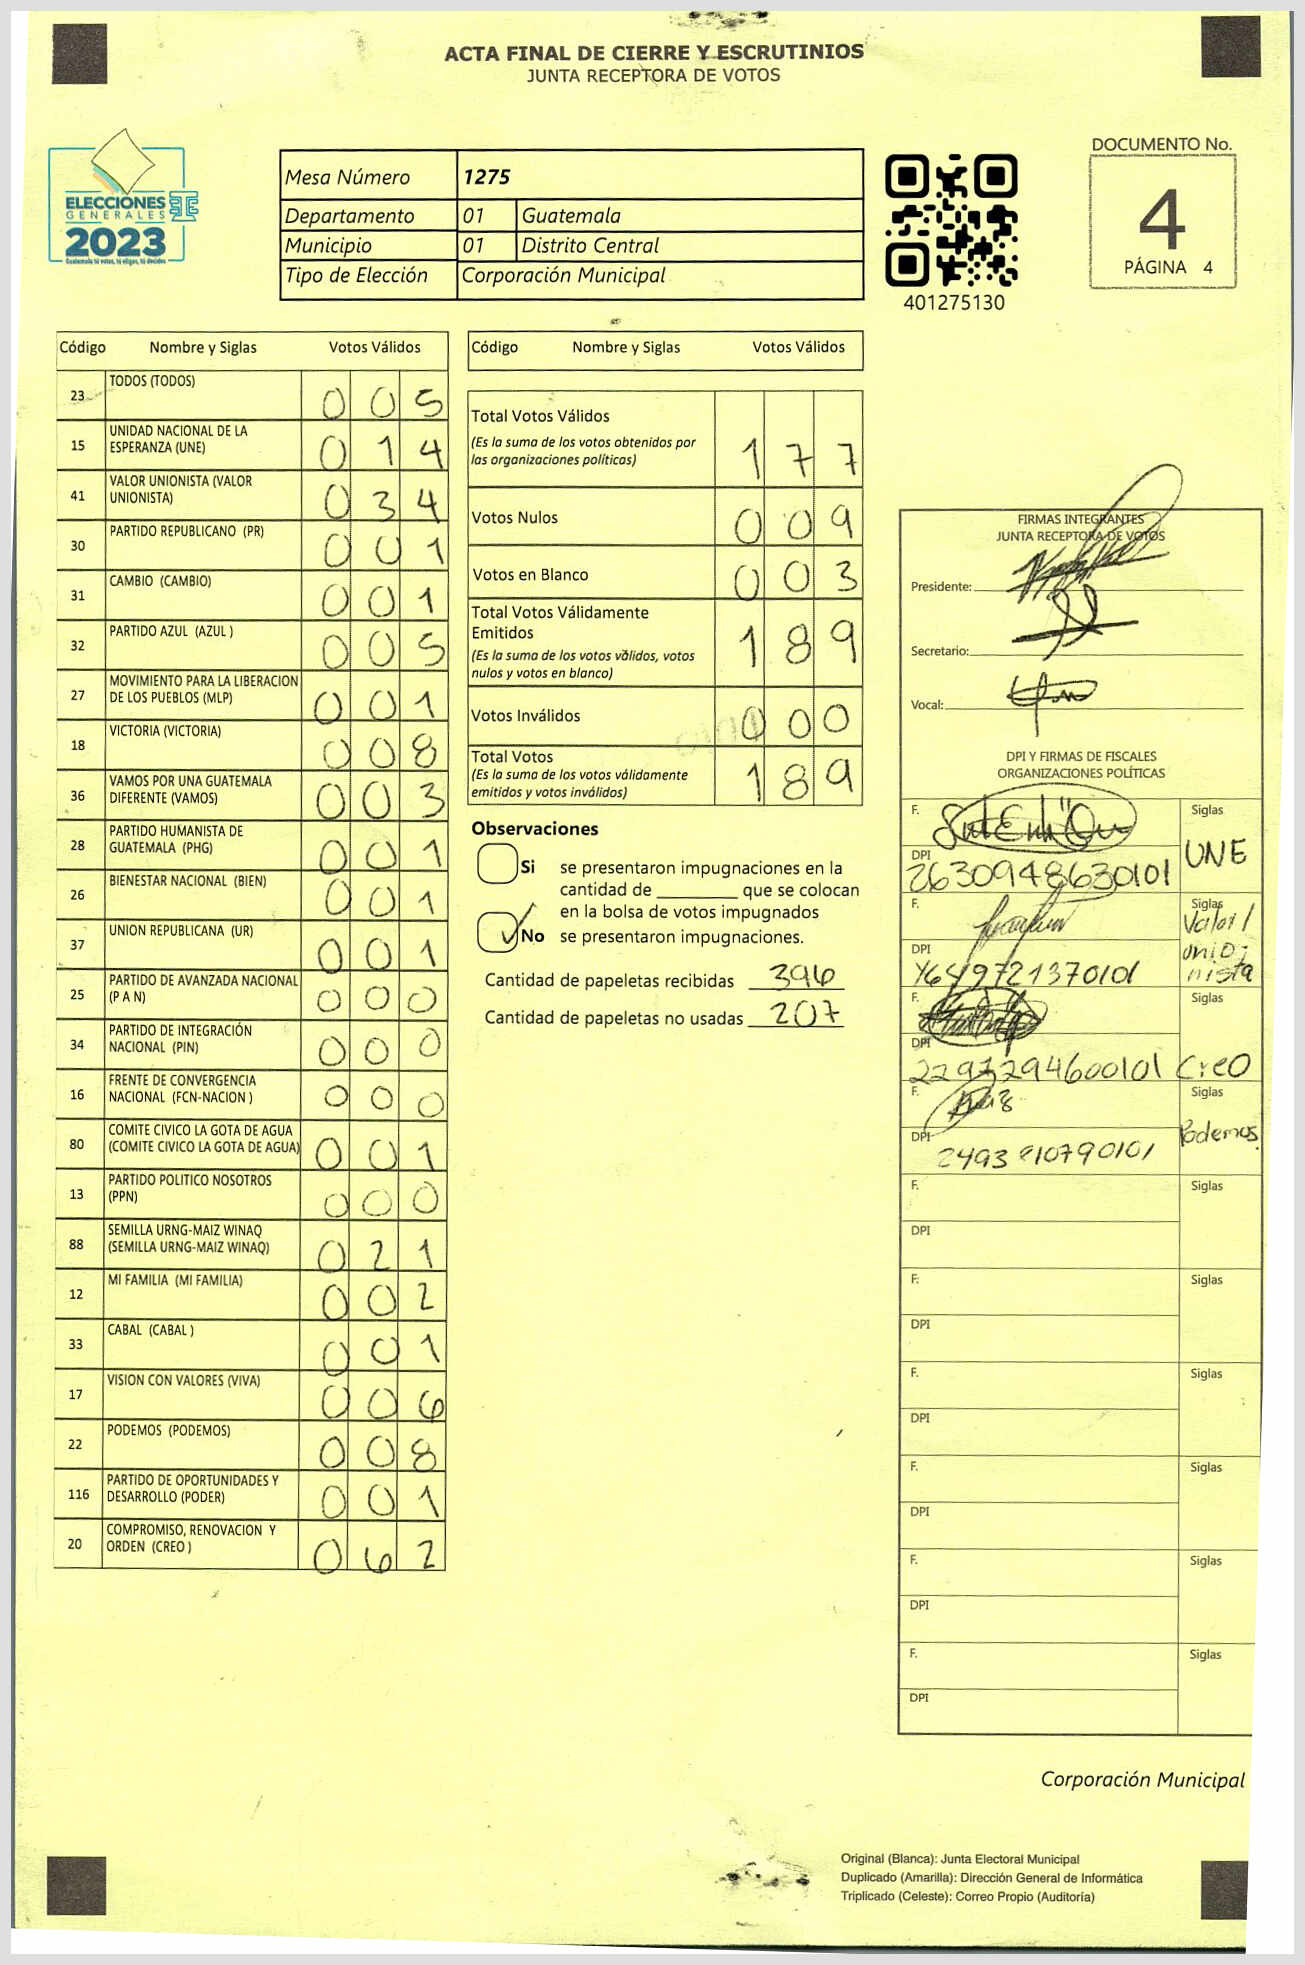 ACTA FINAL DE CIERRE Y ESCRUTINIOS
JUNTA RECEPTORA DE VOTOS
ELECCIONES
GENERALES
2023
Guatemala tú votas, tú eliges, tú decides
Mesa Número 1275
Departamento 01 Guatemala
Municipio 01 Distrito Central
Tipo de Elección Corporación Municipal
401275130
DOCUMENTO No.
4
PÁGINA 4
Código Nombre y Siglas Votos Válidos
23 TODOS (TODOS) 0 0 5
15 UNIDAD NACIONAL DE LA
ESPERANZA (UNE) 0 1 4
41 VALOR UNIONISTA (VALOR
UNIONISTA) 0 3 4
30 PARTIDO REPUBLICANO (PR) 0 0 1
31 CAMBIO (CAMBIO) 0 0 1
32 PARTIDO AZUL (AZUL ) 0 0 5
27 MOVIMIENTO PARA LA LIBERACION
DE LOS PUEBLOS (MLP) 0 0 1
18 VICTORIA (VICTORIA) 0 0 8
36 VAMOS POR UNA GUATEMALA
DIFERENTE (VAMOS) 0 0 3
28 PARTIDO HUMANISTA DE
GUATEMALA (PHG) 0 0 1
26 BIENESTAR NACIONAL (BIEN) 0 0 1
37 UNION REPUBLICANA (UR) 0 0 1
25 PARTIDO DE AVANZADA NACIONAL
(P A N) 0 0 0
34 PARTIDO DE INTEGRACIÓN
NACIONAL (PIN) 0 0 0
16 FRENTE DE CONVERGENCIA
NACIONAL (FCN-NACION ) 0 0 0
80 COMITE CIVICO LA GOTA DE AGUA
(COMITE CIVICO LA GOTA DE AGUA) 0 0 1
13 PARTIDO POLITICO NOSOTROS
(PPN) 0 0 0
88 SEMILLA URNG-MAIZ WINAQ
(SEMILLA URNG-MAIZ WINAQ) 0 2 1
12 MI FAMILIA (MI FAMILIA) 0 0 2
33 CABAL (CABAL ) 0 0 1
17 VISION CON VALORES (VIVA) 0 0 6
22 PODEMOS (PODEMOS) 0 0 8
116 PARTIDO DE OPORTUNIDADES Y
DESARROLLO (PODER) 0 0 1
20 COMPROMISO, RENOVACION Y
ORDEN (CREO ) 0 6 2
Código Nombre y Siglas Votos Válidos
Total Votos Válidos
(Es la suma de los votos obtenidos por
las organizaciones políticas) 1 7 7
Votos Nulos 0 0 9
Votos en Blanco 0 0 3
Total Votos Válidamente
Emitidos 1 8 9
(Es la suma de los votos válidos, votos
nulos y votos en blanco)
Votos Inválidos 0 0 0
Total Votos
(Es la suma de los votos válidamente
emitidos y votos inválidos) 1 8 9
Observaciones
Si se presentaron impugnaciones en la
cantidad de que se colocan
en la bolsa de votos impugnados
No se presentaron impugnaciones.
Cantidad de papeletas recibidas 396
Cantidad de papeletas no usadas 207
FIRMAS INTEGRANTES
JUNTA RECEPTORA DE VOTOS
Presidente:
Secretario:
Vocal:
DPI Y FIRMAS DE FISCALES
ORGANIZACIONES POLÍTICAS
F. Siglas
UNE
DPI
2630948630101
F. Siglas
Valor/
unio-
nista
DPI
F. Siglas
DPI
2297294600101 CreO
F. Siglas
Podemos
DPI
F. Siglas
DPI
F. Siglas
DPI
F. Siglas
DPI
F. Siglas
DPI
F. Siglas
DPI
F. Siglas
DPI
Corporación Municipal
Original (Blanca): Junta Electoral Municipal
Duplicado (Amarilla): Dirección General de Informática
Triplicado (Celeste): Correo Propio (Auditoría)